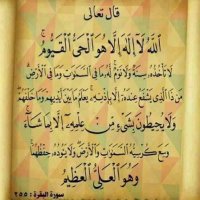 قال تعالى
اللَّهُ لَآ إِلَٰهَ إِلَّا هُوَ الْحَيُّ الْقَيُّومُ
لَا تَأْخُذُهُۥ سِنَةٌ وَلَا نَوْمٌ لَّهُۥ مَا فِي السَّمَٰوَٰتِ وَمَا فِي الْأَرْضِ
مَن ذَا الَّذِي يَشْفَعُ عِندَهُۥٓ إِلَّا بِإِذْنِهِۦ يَعْلَمُ مَا بَيْنَ أَيْدِيهِمْ وَمَا خَلْفَهُمْ
وَلَا يُحِيطُونَ بِشَيْءٍ مِّنْ عِلْمِهِۦٓ إِلَّا بِمَا شَآءَ
وَسِعَ كُرْسِيُّهُ السَّمَٰوَٰتِ وَالْأَرْضَ وَلَا يَـُٔودُهُۥ حِفْظُهُمَا
وَهُوَ الْعَلِيُّ الْعَظِيمُ
سورة البقرة : ٢٥٥